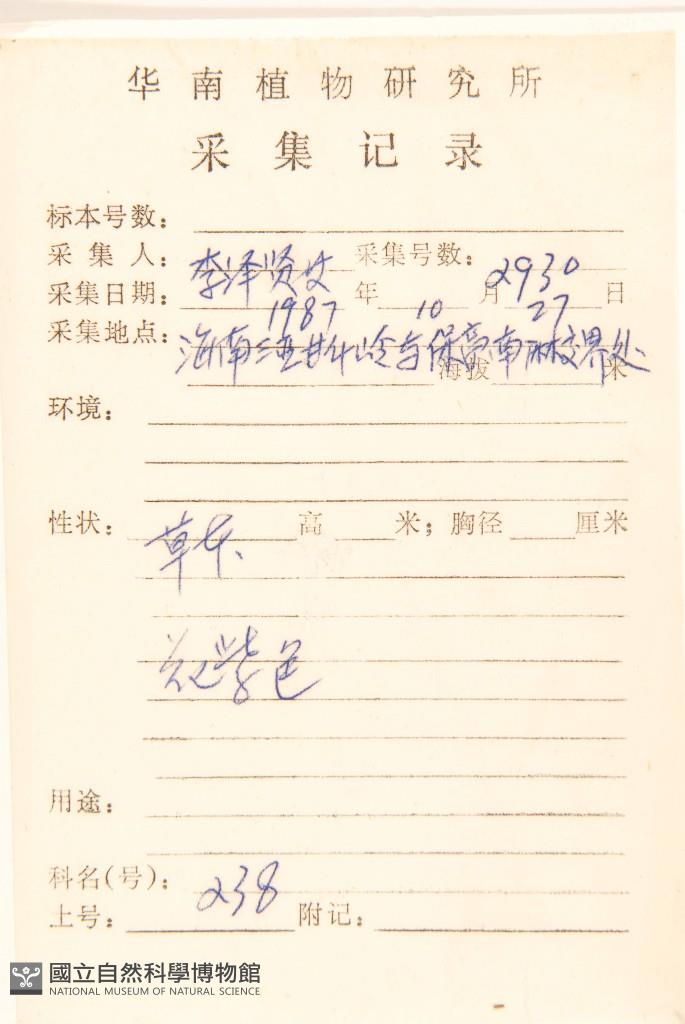 华南植物研究所
采集记录
标本号数：
采集人：李泽贤 采集号数：2930
采集日期：1987年10月27日
采集地点：海南三亚甘什岭与保亭南林交界处
海拔 米
环境：
性状：草本、 高 米；胸径 厘米
花紫色
用途：
科名(号)：238
土号： 附记：
國立自然科學博物館
NATIONAL MUSEUM OF NATURAL SCIENCE